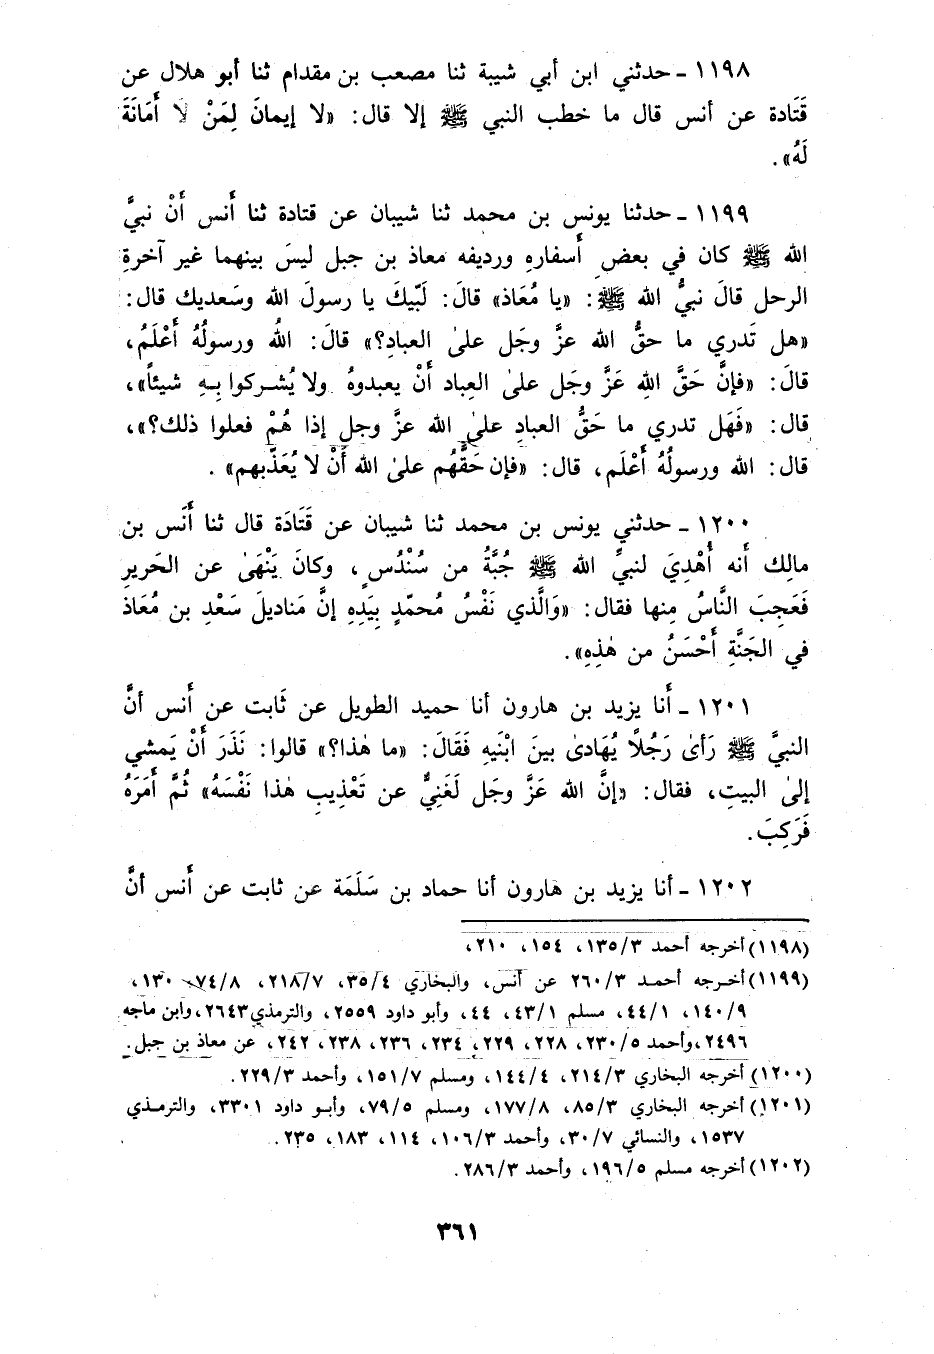 ١١٩٨ - حدثني ابن أبي شيبة ثنا مصعب بن مقدام ثنا أبو هلال عن
قَتَادة عن أنس قال ما خطب النبي ﷺ إلا قال: «لا إيمانَ لِمَنْ لا أَمَانَةَ
لَهُ».
١١٩٩ - حدثنا يونس بن محمد ثنا شيبان عن قتادة ثنا أَنس أَنْ نبيَّ
الله ﷺ كان في بعض أَسفارهِ ورديفه معاذ بن جبل ليسَ بينهما غير آخرةِ
الرحل قالَ نبيُّ الله ﷺ: «يا مُعَاذ» قالَ: لَبّيكَ يا رسولَ الله وسَعديك قال:
«هل تَدري ما حقُّ الله عزَّ وجَل علىٰ العبادِ؟» قالَ: اللهُ ورسولُهُ أَعْلَمُ،
قالَ: «فإنَّ حَقَّ اللهِ عَزَّ وجَل علىٰ العِباد أَنْ يعبدوهُ ولا يُشركوا بِهِ شيئاً»،
قال: «فَهَل تدري ما حَقُّ العبادِ علىٰ الله عزَّ وجل إذا هُمْ فعلوا ذلك؟»،
قال: الله ورسولُهُ أَعْلَم، قال: «فإن حَقَّهُم علىٰ الله أَنْ لا يُعَذّبهم».
١٢٠٠ - حدثني يونس بن محمد ثنا شيبان عن قَتَادَة قال ثنا أَنَس بن
مالِك أَنه أُهْدِيَ لنبيِّ الله ﷺ جُبَّةُ من سُنْدُسٍ، وكانَ يَنْهَىٰ عن الحَريرِ
فَعَجِبَ النَّاسُ مِنها فقال: «وَالَّذي نَفْسُ مُحمّدٍ بيَدِهِ إنَّ مَناديلَ سَعْدِ بن مُعَاذ
في الجَنَّةِ أَحْسَنُ من هٰذِهِ».
١٢٠١ - أَنا يزيد بن هارون أنا حميد الطويل عن ثَابت عن أَنس أنَّ
النبيَّ ﷺ رَأىٰ رَجُلاً يُهَادىٰ بينَ ابْنَيهِ فَقَالَ: «ما هٰذا؟» قالوا: نَذَرَ أَنْ يَمشي
إلىٰ البيتِ، فقال: «إنَّ الله عَزَّ وجَل لَغَنِيٌّ عن تَعْذِيبِ هٰذا نَفْسَهُ» ثُمَّ أَمَرَهُ
فَرَكِبَ.
١٢٠٢ - أنا يزيد بن هارون أنا حماد بن سَلَمَة عن ثابت عن أَنس أنَّ
(١١٩٨) أخرجه أحمد ١٣٥/٣، ١٥٤، ٢١٠،
(١١٩٩) أخرجه أحمد ٢٦٠/٣ عن أنس، والبخاري ٣٥/٤، ٢١٨/٧، ٧٤/٨، ١٣٠،
١٤٠/٩، ٤٤/١، مسلم ٤٣/١، ٤٤، وأبو داود ٢٥٥٩، والترمذي ٢٦٤٣، وابن ماجه
٢٤٩٦، وأحمد ٢٣٠/٥، ٢٢٨، ٢٢٩، ٢٣٤، ٢٣٦، ٢٣٨، ٢٤٢، عن معاذ بن جبل.
(١٢٠٠) أخرجه البخاري ٢١٤/٣، ١٤٤/٤، ومسلم ١٥١/٧، وأحمد ٢٢٩/٣.
(١٢٠١) أخرجه البخاري ٨٥/٣، ١٧٧/٨، ومسلم ٧٩/٥، وأبو داود ٣٣٠١، والترمذي
١٥٣٧، والنسائي ٣٠/٧، وأحمد ١٠٦/٣، ١١٤، ١٨٣، ٢٣٥.
(١٢٠٢) أخرجه مسلم ١٩٦/٥، وأحمد ٢٨٦/٣.
٣٦١